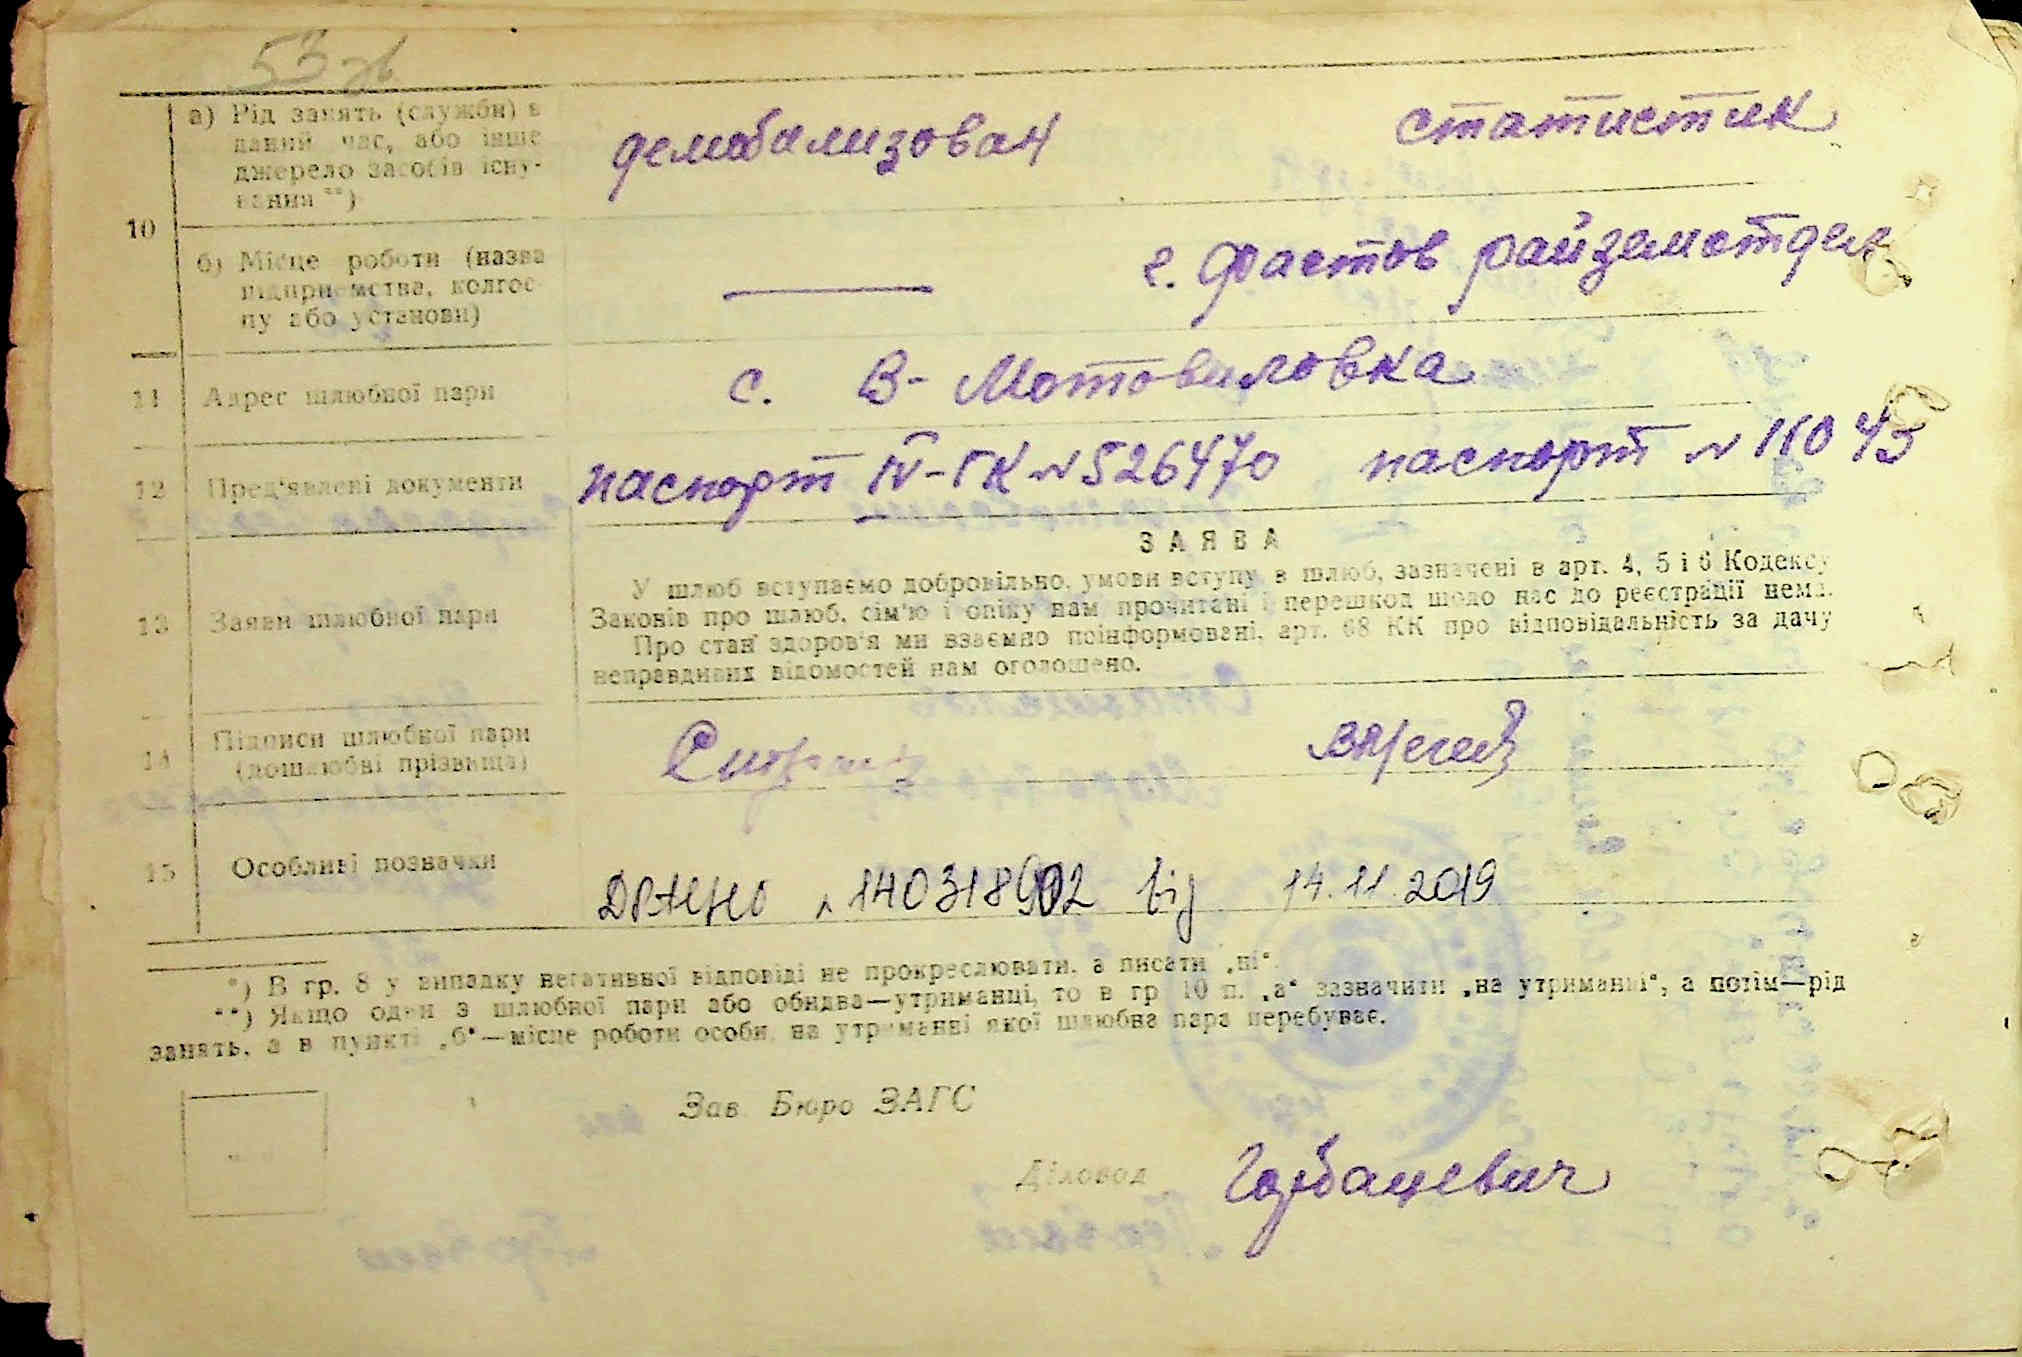 53 зв
а) Рід занять (служби) в
даний час, або інше
джерело засобів існу-
вання **)
демобализован статистик
10
б) Місце роботи (назва
підприємства, колгос-
пу або установи)
— г. Фастов райземотдел
11 Адрес шлюбної пари с. В-Мотовиловка
12 Пред'явлені документи паспорт IV-ГК № 526470 паспорт №
13 Заяви шлюбної пари
ЗАЯВА
У шлюб вступаємо добровільно, умови вступу в шлюб, зазначені в арт. 4, 5 і 6 Кодексу
Законів про шлюб, сім'ю і опіку нам прочитані і перешкод щодо нас до реєстрації нема.
Про стан здоров'я ми взаємно поінформовані, арт. 68 КК про відповідальність за дачу
неправдивих відомостей нам оголошено.
14 Підписи шлюбної пари
(дошлюбні прізвища)
15 Особливі позначки
ДРАЦС 14.11.2019
*) В гр. 8 у випадку негативної відповіді не прокреслювати, а писати „ні“.
**) Якщо один з шлюбної пари або обидва—утриманці, то в гр 10 п. „а“ зазначити „на утриманні“, а потім—рід
занять, а в пункті „б“—місце роботи особи, на утриманні якої шлюбна пара перебуває.
Зав. Бюро ЗАГС
Діловод Горбацевич